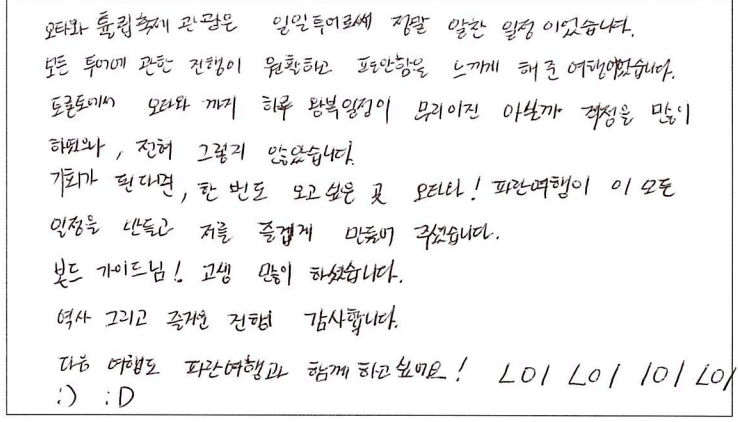 오타와 튤립축제 관광은 일일투어로써 정말 알찬 일정이었습니다.
모든 투어에 관한 진행이 원활하고 편안함을 느끼게 해 준 여행이었습니다.
토론토에서 오타와 까지 하루 왕복일정이 무리이진 아닐까 걱정을 많이
하였으나, 전혀 그렇지 않았습니다.
기회가 된다면, 한 번도 오고 싶은 곳 오타와! 파란여행이 이 모든
일정을 만들고 저를 즐겁게 만들어 주셨습니다.
본드 가이드님! 고생 많이 하셨습니다.
역사 그리고 즐거운 진행 감사합니다.
다음 여행도 파란여행과 함께하고 싶어요!
:) :D